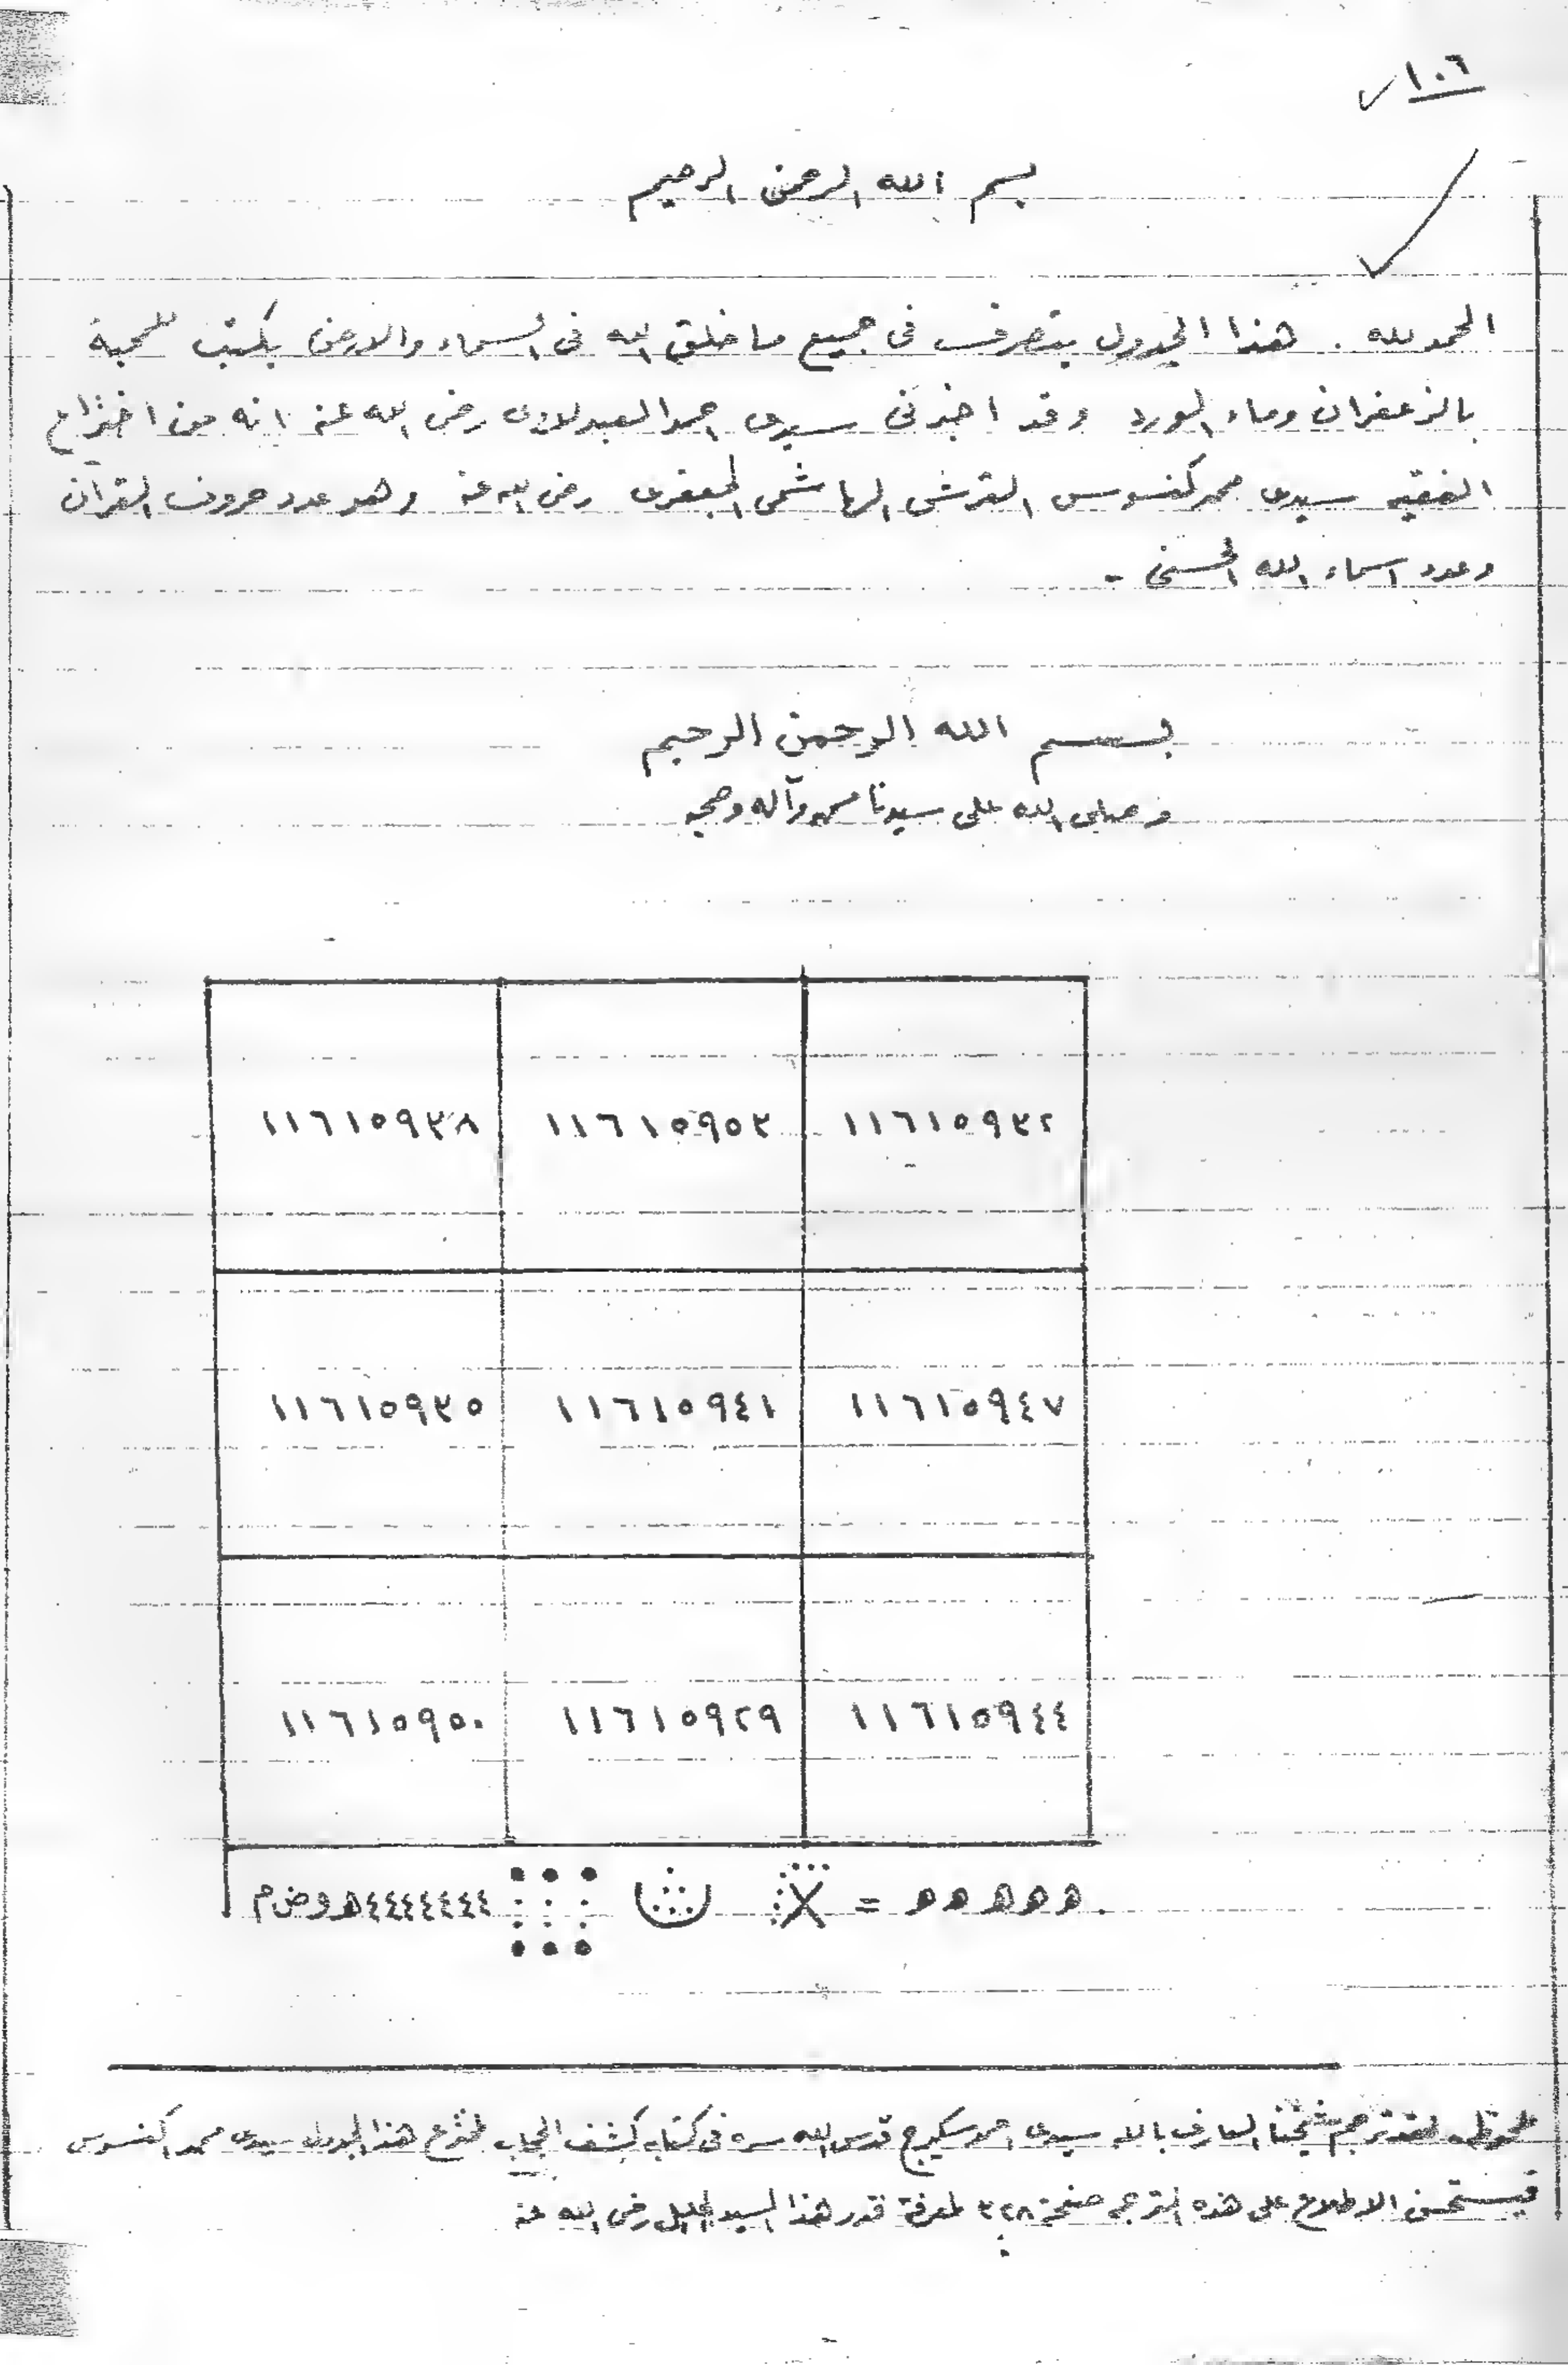 ١٠٦
بسم الله الرحمن الرحيم
الحمد لله . هذا الجدول يتصرف فى جميع ما خلق الله فى السماء والارض يكتب للمحبة
بالزعفران وماء الورد وقد اخبرنى سيدى احمد العبدلاوى رضى الله عنه انه من اختراع
الفقيه سيدى محمد كنسوس القرشى الهاشمى الجعفرى رضى الله عنه وهو عدد حروف القرآن
وعدد اسماء الله الحسنى -
بسم الله الرحمن الرحيم
وصلى الله على سيدنا محمد وآله وصحبه
١١٦١٥٩٣٢ ١١٦١٥٩٥٣ ١١٦١٥٩٣٨
١١٦١٥٩٤٧ ١١٦١٥٩٤١ ١١٦١٥٩٣٥
١١٦١٥٩٤٤ ١١٦١٥٩٢٩ ١١٦١٥٩٥٠
ه ه ه ه ه = ٤٤٤٤٤٤٤ ه و ض م
ملحوظة. لقد ترجم شيخنا العارف بالله سيدى احمد سكيرج قدس الله سره فى كتابه كشف الحجاب لمخترع هذا الجدول سيدى محمد اكنسوس
فيستحسن الاطلاع على هذه الترجمة صفحة ٣٢٨ لمعرفة قدر هذا السيد الجليل رضى الله عنه